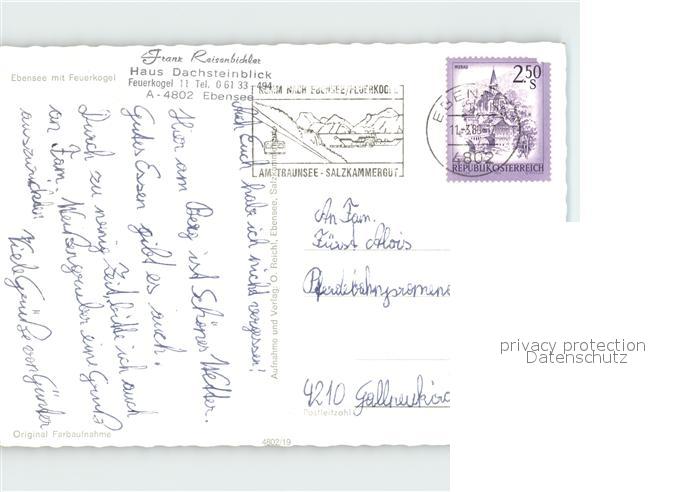 Ebensee mit Feuerkogel
Franz Reisenbichler
Haus Dachsteinblick
Feuerkogel 11 Tel. 0 61 33 - 494
A - 4802 Ebensee
KOMM NACH EBENSEE/FEUERKOGEL
AM TRAUNSEE - SALZKAMMERGUT
EBENSEE
4802
MURAU
2.50
S
REPUBLIK ÖSTERREICH
Auch Euch habe ich nicht vergessen!
Hier am Berg ist Schönes Wetter.
Gutes Essen gibt es auch.
Durch zu wenig Zeit, bitte ich auch
an Fam. Weißengruber eine Gruß
auszurichten
Viele Grüße von Günter
Aufnahme und Verlag: O. Reichl, Ebensee, Salzkammergut
An Fam.
Fürst Alois
Pferdebahnpromena
4210 Gallneukirc
Postleitzahl
Original Farbaufnahme
4802/19
privacy protection
Datenschutz